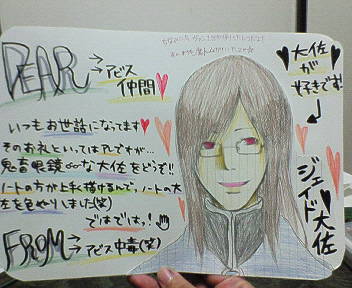 DEAR→アビス
仲間
いつもお世話になってます
そのお礼といってはアレですが…
鬼畜眼鏡∞な大佐をどうぞ!!
ノートの方が上手く描けるんで、ノートの大
佐を見やりました(笑)
ではではっ!
FROM→アビス中毒(笑)
大佐
が
好きです!
ジェイド大佐